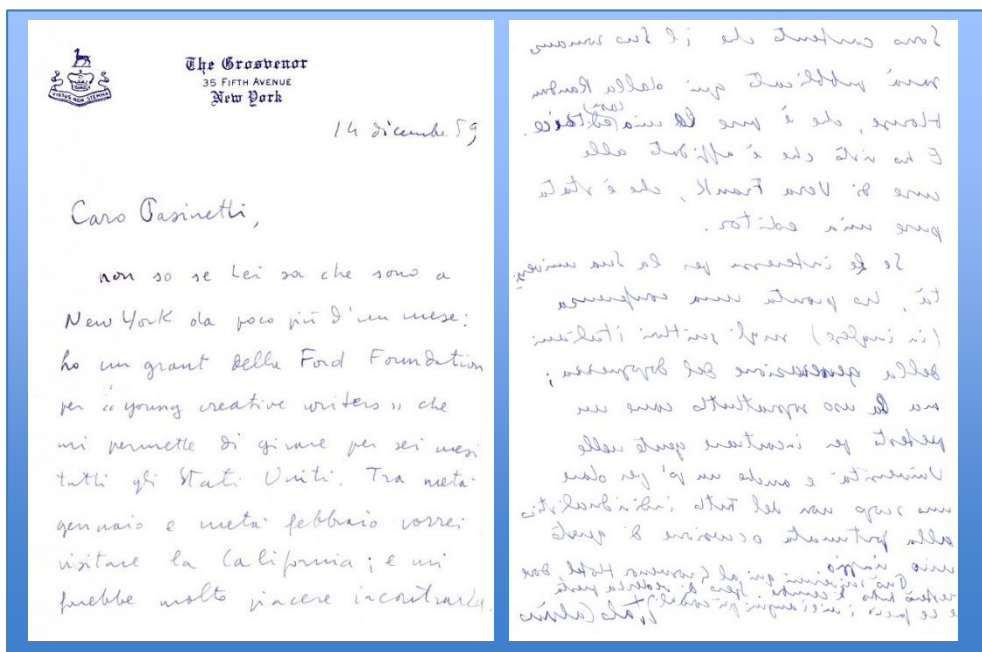 VIRTUS NON STEMMA
The Grosvenor
35 FIFTH AVENUE
New York
14 dicembre 59
Caro Pasinetti,
non so se Lei sa che sono a
New York da poco più d'un mese:
ho un grant della Ford Foundation
per "young creative writers" che
mi permette di girare per sei mesi
tutti gli Stati Uniti. Tra metà
gennaio e metà febbraio vorrei
visitare la California; e mi
farebbe molto piacere incontrarLa.
Sono contento che il Suo romanzo
sarà pubblicato qui dalla Random
House, che è pure la mia casa editrice.
E ho visto che è affidato alle
cure di Vera Frank, che è stata
pure mia editor.
Se Le interessa per la Sua universi-
tà, ho pronta una conferenza
(in inglese) sugli scrittori italiani
della generazione del dopoguerra;
ma la uso soprattutto come un
pretesto per incontrare gente nelle
Università e anche un po' per dare
uno scopo non del tutto individualistico
alla fortunata occasione di questo
mio viaggio.
Può scrivermi qui al Grosvenor Hotel dove
resterò tutto dicembre. Spero di vederLa presto
e Le porgo i miei auguri più cordiali. Italo Calvino